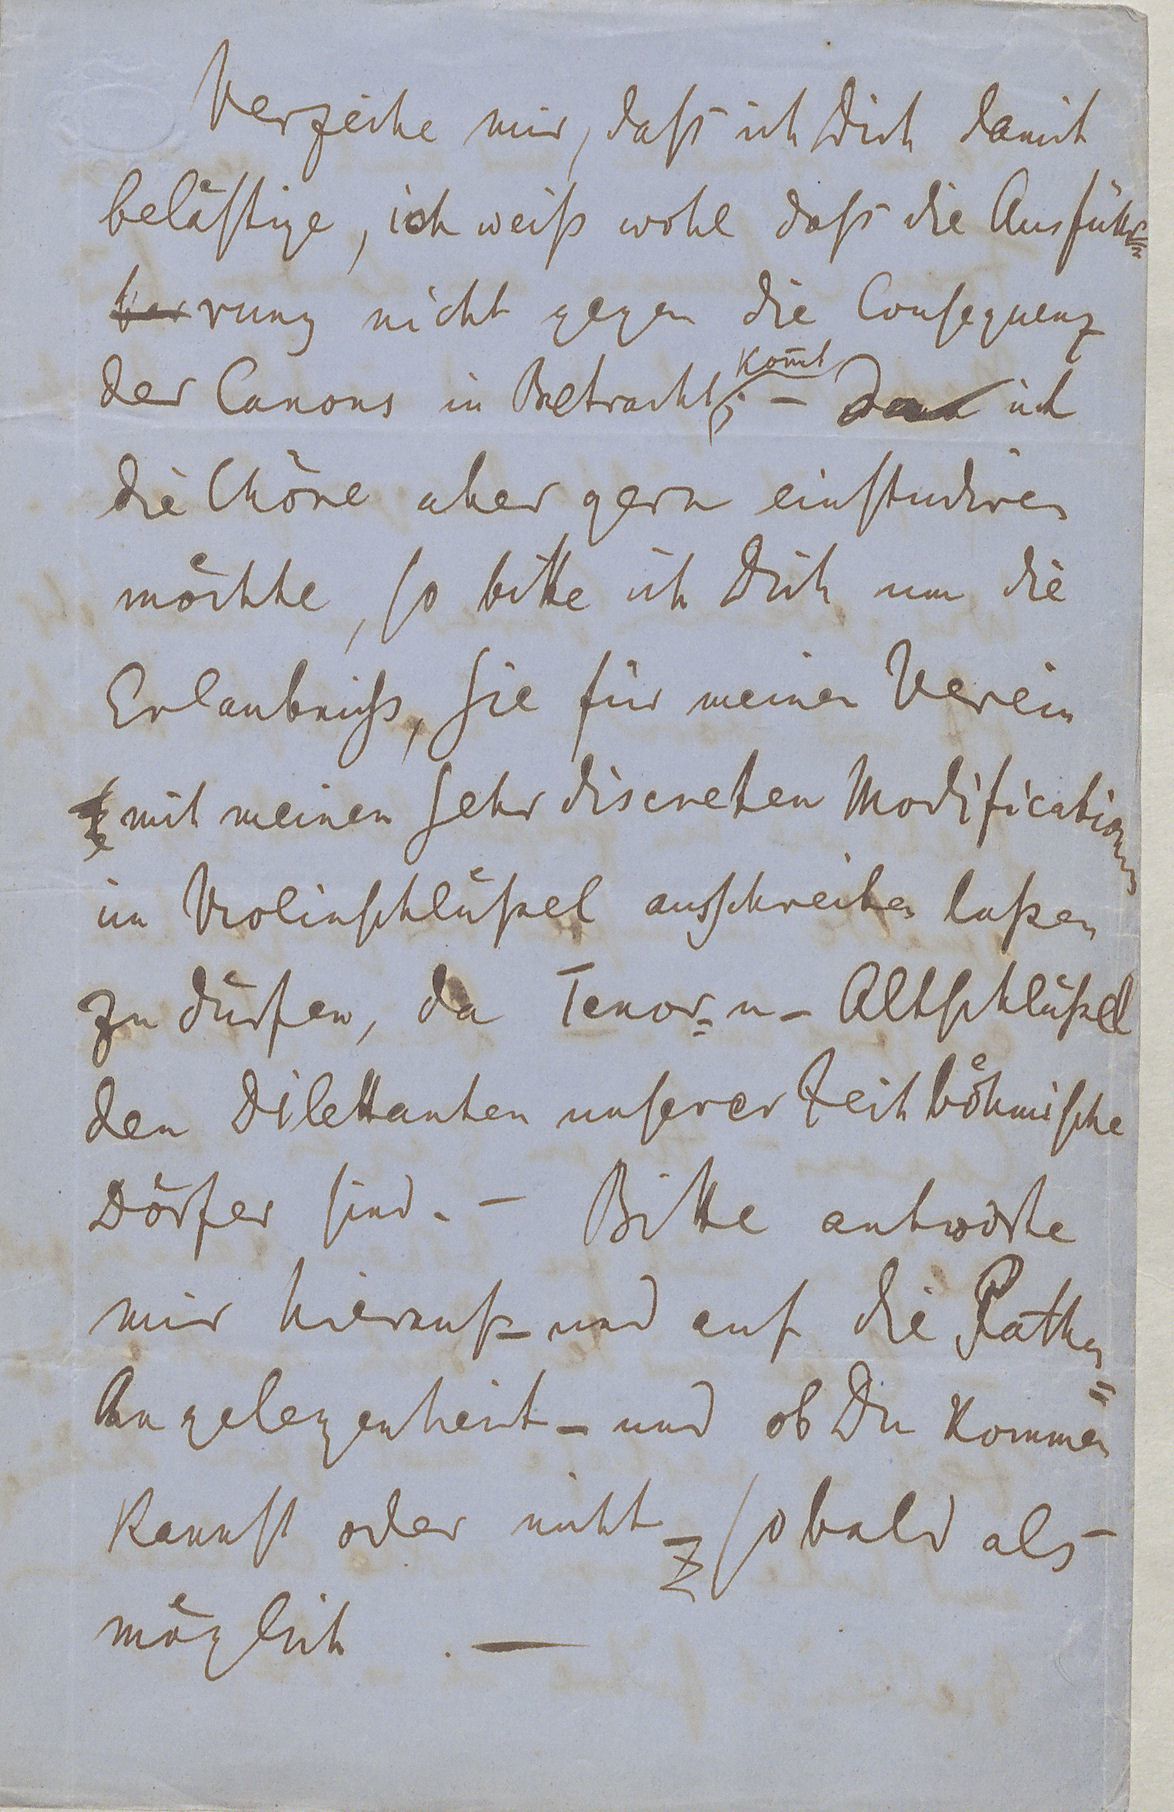 Verzeihe mir, daß ich Dich damit
belästige, ich weiß wohl daß die Ausführ=
rung nicht gegen die Consequenz
der Canons in Betracht komt; – Da ich
die Chöre aber gern einstudiren
möchte, so bitte ich Dich um die
Erlaubniß, sie für meinen Verein
mit meinen sehr discreten Modificationen
im Violinschlüßel ausschreiben laßen
zu dürfen, da Tenor= u– Altschlüßel
den Dilettanten unserer Zeit böhmische
Dörfer sind. – Bitte antworte
mir hierauf – und auf die Pathen=
Angelegenheit – und ob Du kommen
kannst oder nicht – sobald als
möglich . —